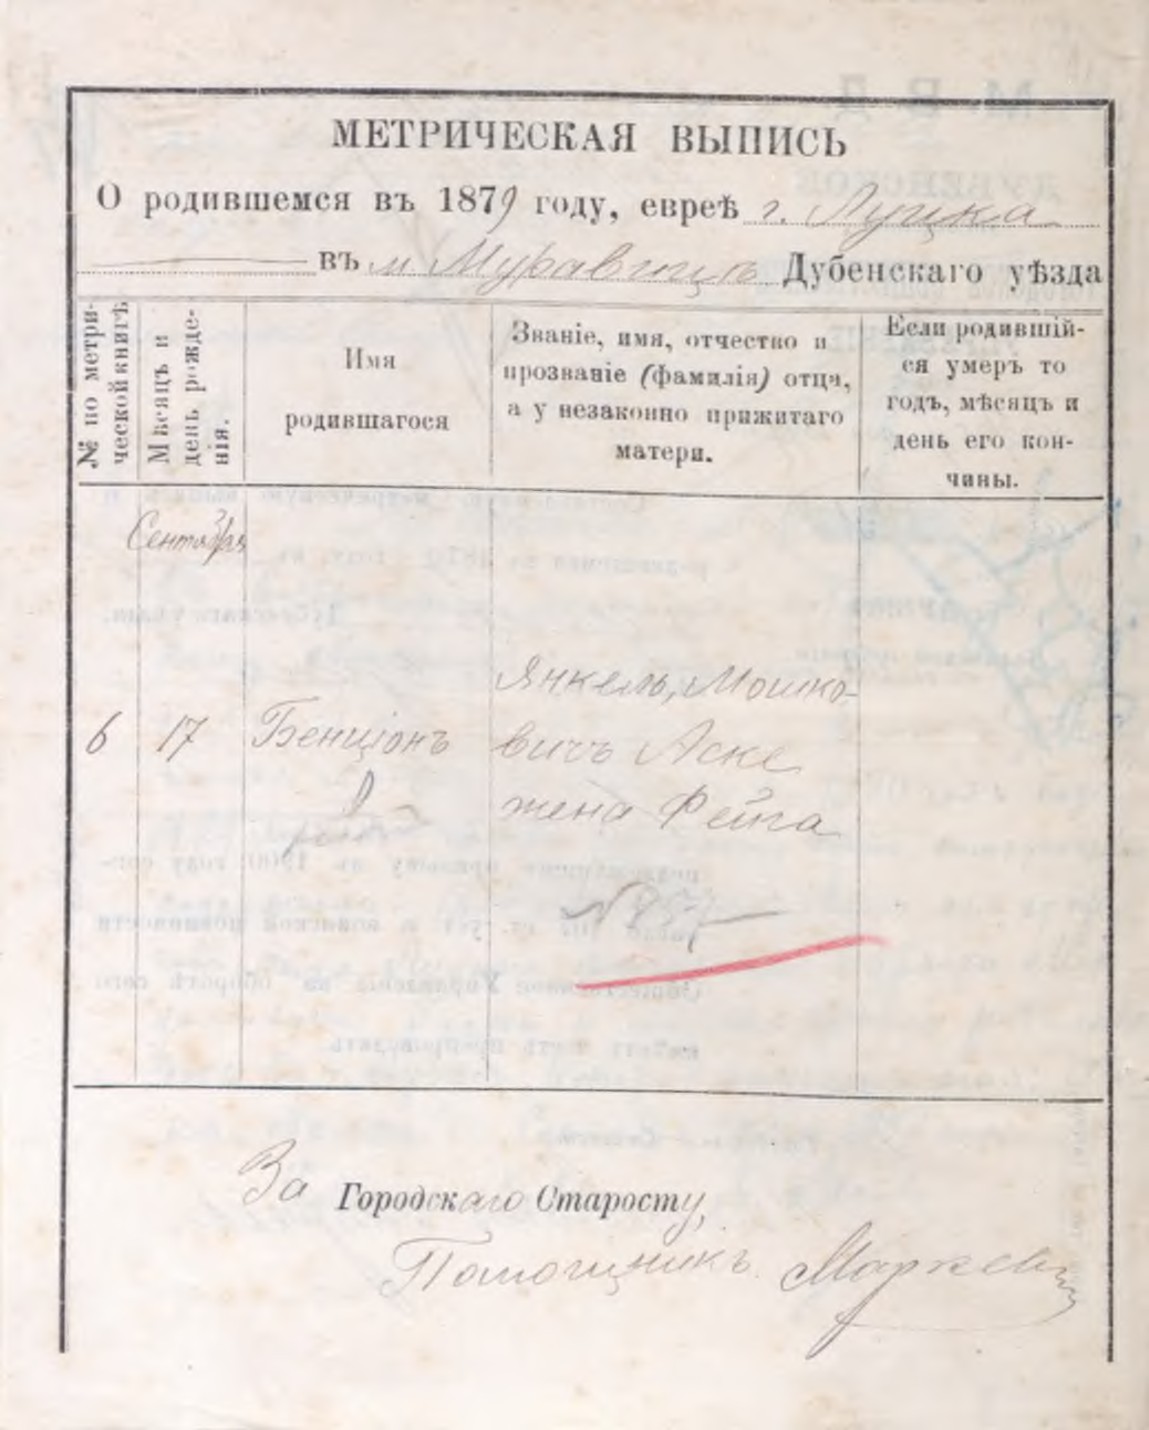 МЕТРИЧЕСКАЯ ВЫПИСЬ
О родившемся въ 1879 году, евреѣ г. Луцка
въ м. Муравицъ Дубенскаго уѣзда
№ по метри-
ческой книгѣ
Мѣсяцъ и
день рожде-
нія.
Имя
родившагося
Званіе, имя, отчество и
прозваніе (фамилія) отца,
а у незаконно прижитаго
матери.
Если родившій-
ся умеръ то
годъ, мѣсяцъ и
день его кон-
чины.
Сентября
6 17 Бенціонъ
Янкель, Мошко-
вичъ Аске
жена Фейга
За Городскаго Старосту,
Помощникъ